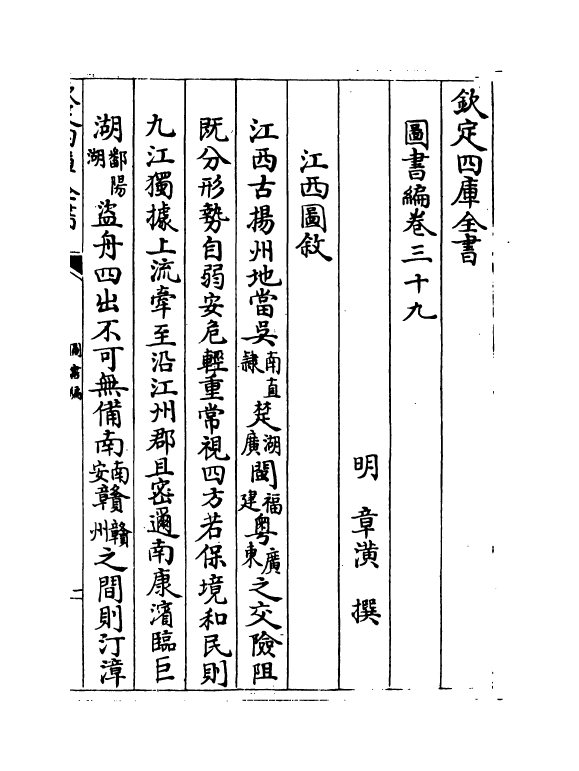 欽定四庫全書
圖書編卷三十九
明 章潢 撰
江西圖敘
江西古揚州地當吳南直隸楚湖廣閩福建粵廣東之交險阻
既分形勢自弱安危輕重常視四方若保境和民則
九江獨據上流牽至沿江州郡且密邇南康濱臨巨
湖鄱陽湖盜舟四出不可無備南南安贛贛州之間則汀漳
圖書編